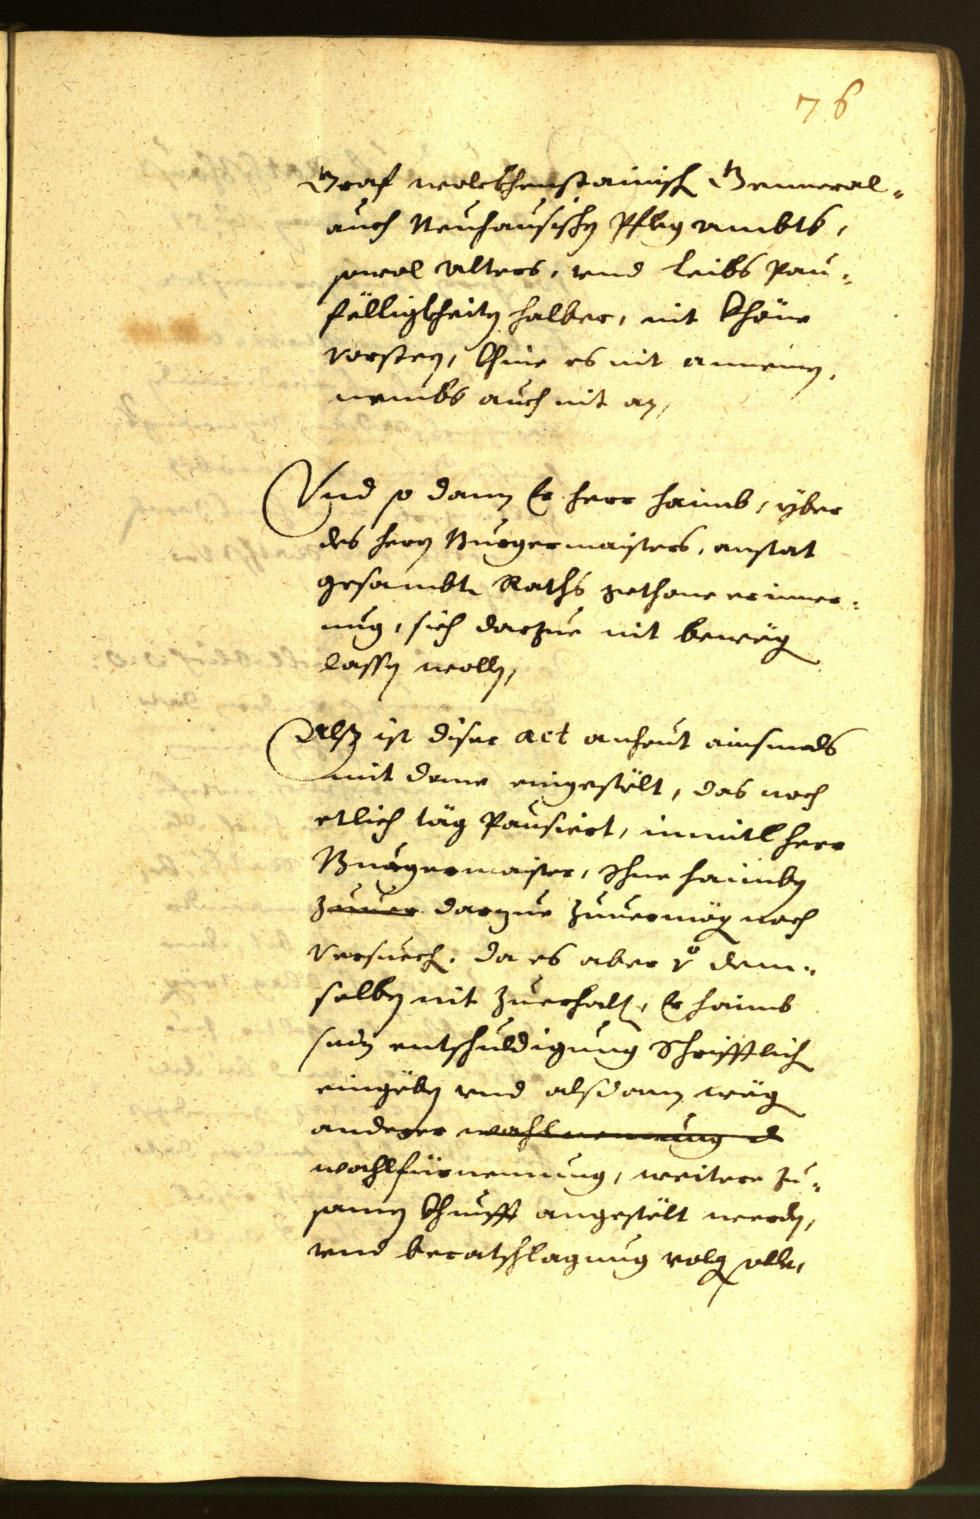 76
Graf wolckhenstainisch Genneral-
auch Neuhausischen Pfleg ambts,
sowol alters, vnd leibs Pau-
fölligkheiten halber, nit khöne
vorsteen, khine es nit annemen,
nembs auch nit an,
Vnd so dann Er herr haimb, yber
des herrn Burgermaisters, anstat
gesambts Raths gethone erinner-
ung, sich darzue nit bewegen
lassen wollen,
Alß ist diser act anheut ainsmals
mit deme eingestölt, das noch
etlich täg Pausiert, inmitl herr
Burgermaister, Ihne haimben
zuuer darzue zuuermögen noch
versuech. da es aber von dem-
selben nit zuerhalten, Er haimb
sein entschuldigung Schrifftlich
eingeben vnd alsdann wegen
anderer wahlnemung d
wahlfürnemung, weitere zu-
samen khunfft angestölt werden,
vnd beratschlagung volgen solle,